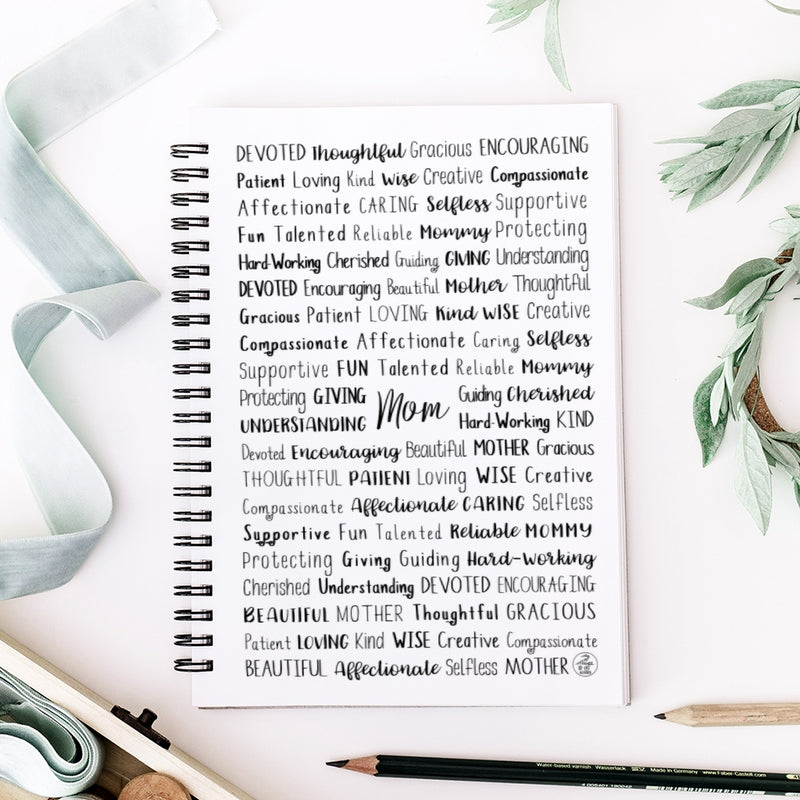 DEVOTED Thoughtful Gracious ENCOURAGING
Patient Loving Kind Wise Creative Compassionate
Affectionate CARING Selfless Supportive
Fun Talented Reliable Mommy Protecting
Hard-Working Cherished Guiding GIVING Understanding
DEVOTED Encouraging Beautiful Mother Thoughtful
Gracious Patient LOVING Kind WISE Creative
Compassionate Affectionate Caring Selfless
Supportive FUN Talented Reliable Mommy
Protecting GIVING Guiding Cherished
Mom
UNDERSTANDING Hard-Working KIND
Devoted Encouraging Beautiful MOTHER Gracious
THOUGHTFUL PATIENT Loving WISE Creative
Compassionate Affectionate CARING Selfless
Supportive Fun Talented Reliable MOMMY
Protecting Giving Guiding Hard-Working
Cherished Understanding DEVOTED ENCOURAGING
BEAUTIFUL MOTHER Thoughtful GRACIOUS
Patient LOVING Kind WISE Creative Compassionate
BEAUTIFUL Affectionate Selfless MOTHER
Water-based varnish Wasserlack Made in Germany www.Faber-Castell.com